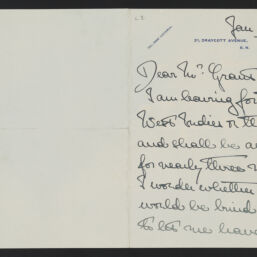 Jan
21, DRAYCOTT AVENUE,
S.W.
Dear Mr. Graves
I am leaving for
West Indies on th
and shall be a
for nearly three
I wonder whether
would be kind
to let me have